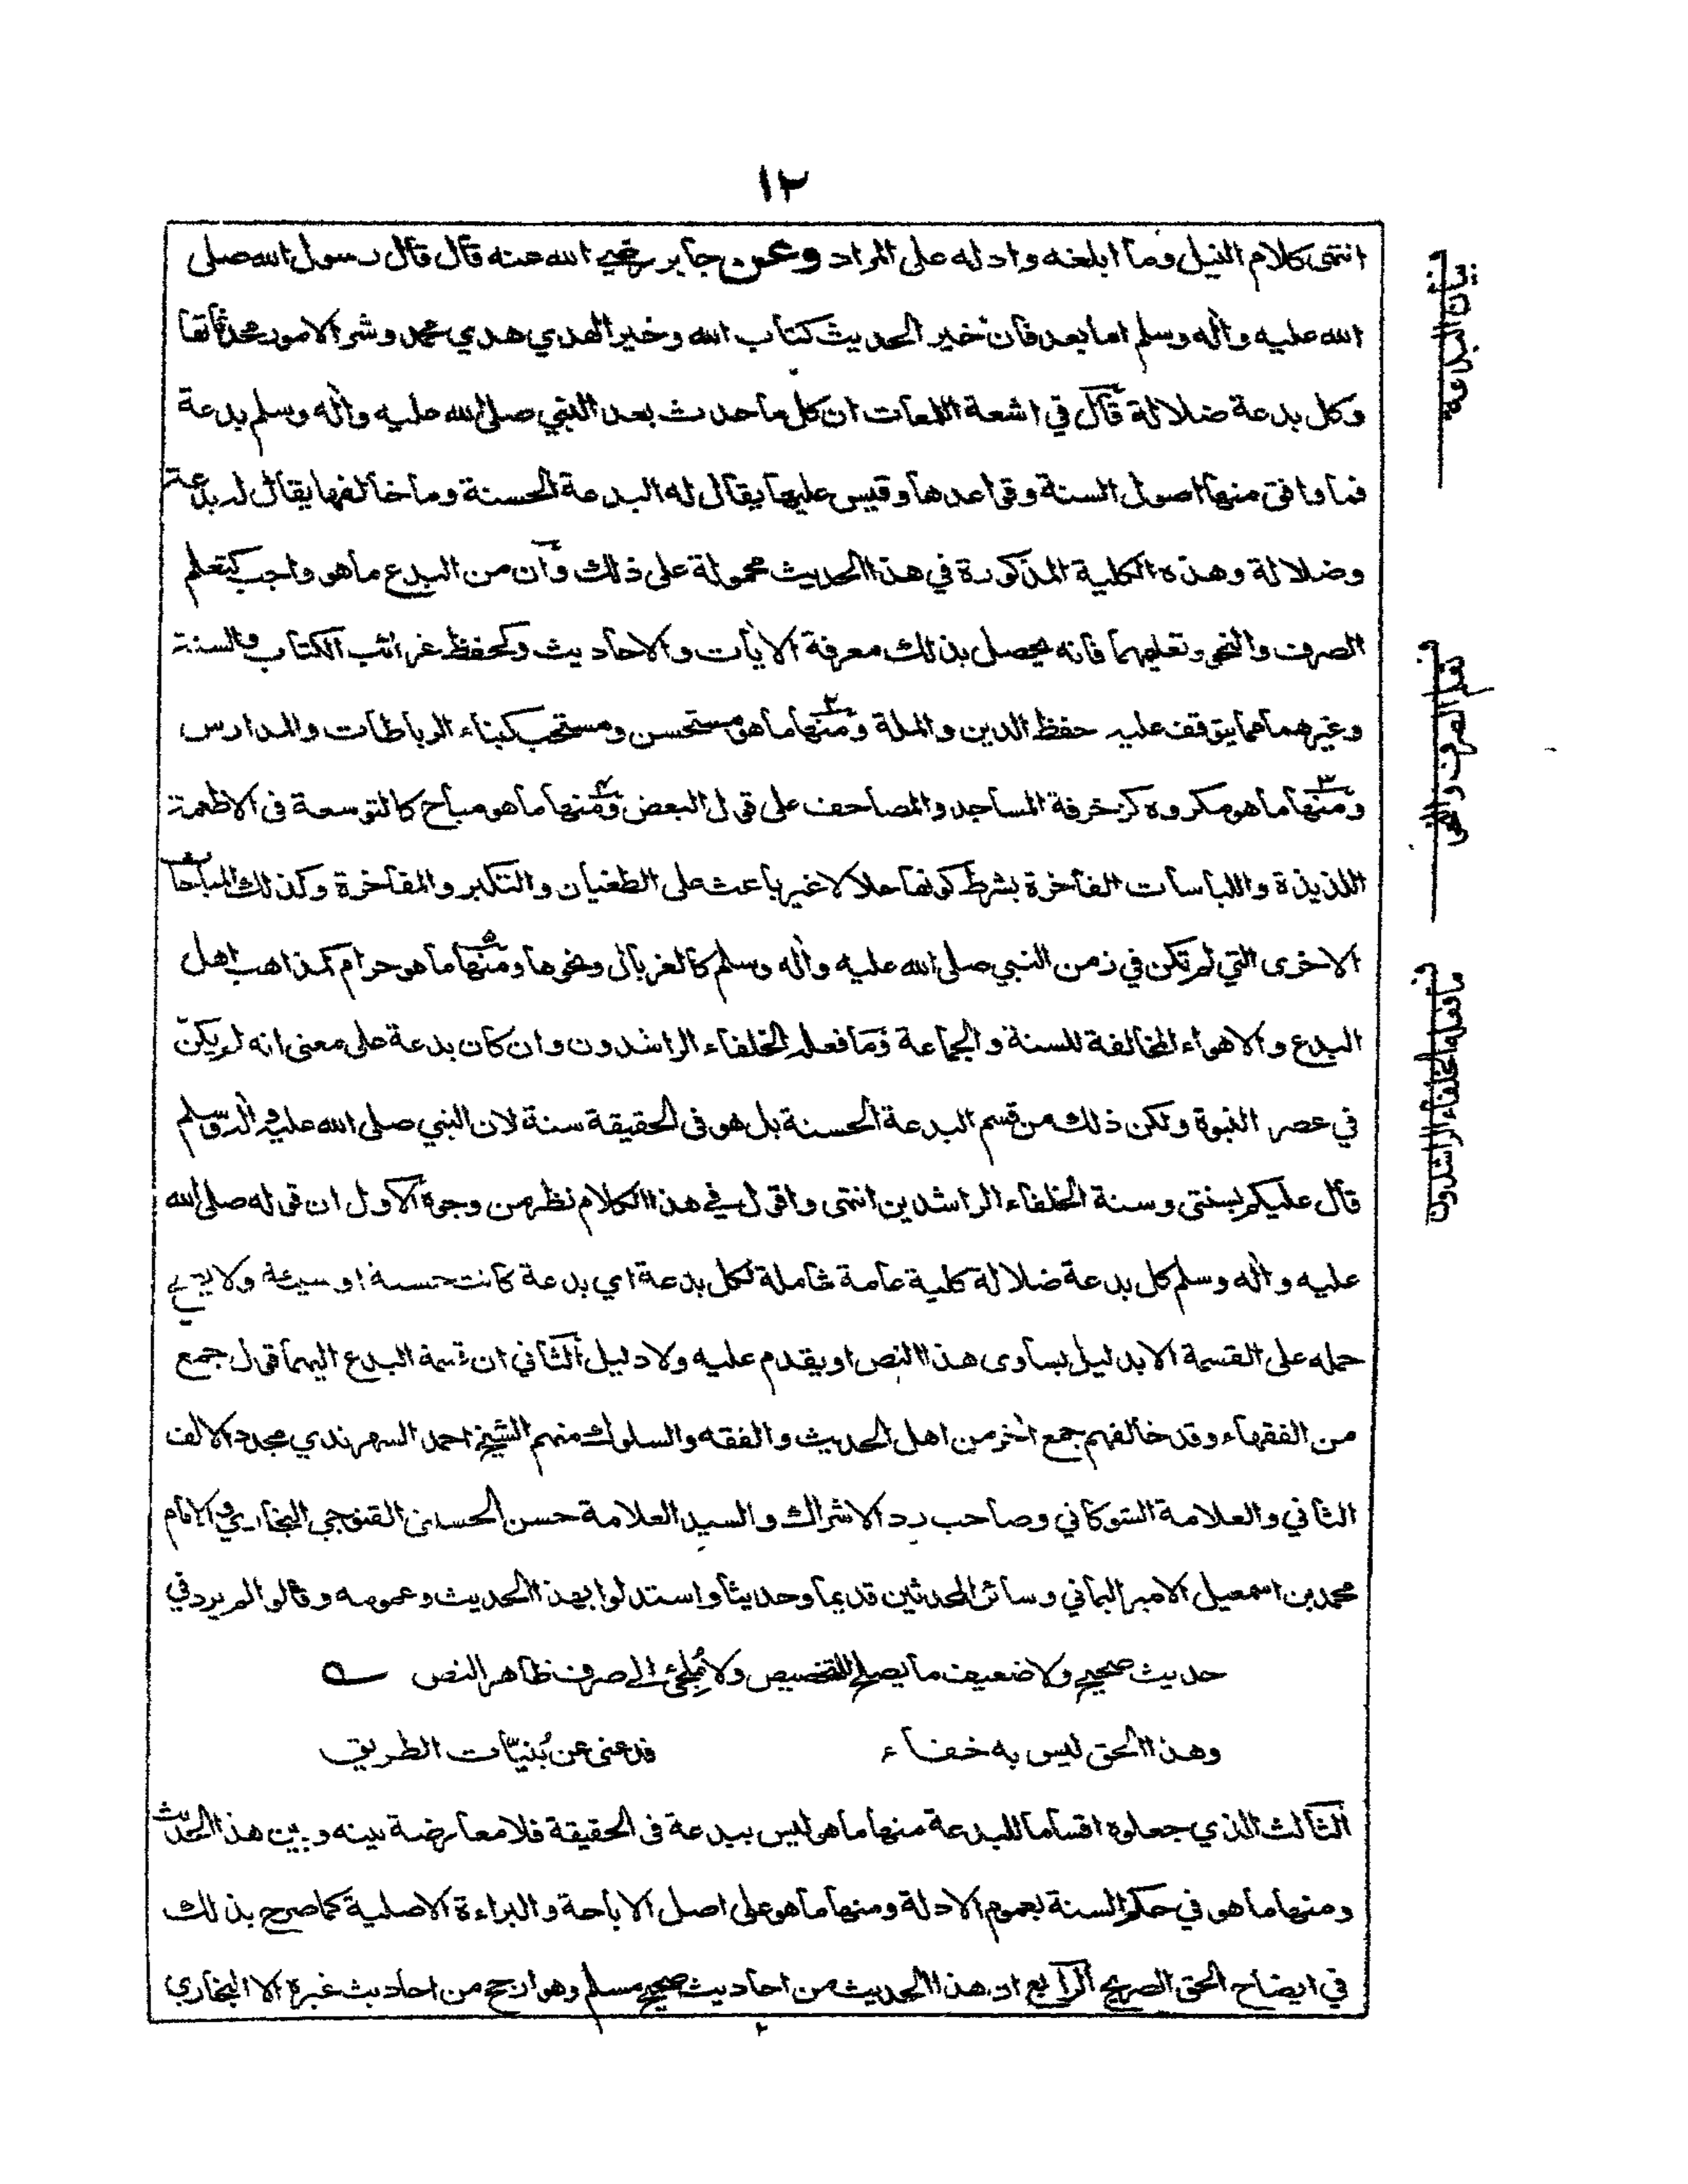 ١٢
انتهى كلام النيل وما ابلغنه وادله على المراد وعن جابر رضي الله عنه قال قال رسول الله صلى
الله عليه وآله وسلم اما بعد فان خير الحديث كتاب الله وخير الهدي هدي محمد وشر الامور محدثاتها
وكل بدعة ضلالة قال في اشعة اللمعات ان كل ما حدث بعد النبي صلى الله عليه وآله وسلم بدعة
فما وافق منها اصول السنة وقواعدها وقيس عليها يقال له البدعة الحسنة وما خالفها يقال له بدعة
وضلالة وهذه الكلية المذكورة في هذا الحديث محمولة على ذلك وان من البدع ما هو واجب كتعلم
الصرف والنحو وتعليمهما فانه يحصل بذلك معرفة الآيات والاحاديث وكحفظ غرائب الكتاب والسنة
وغيرهما مما يتوقف عليه حفظ الدين والملة ٢ ومنها ما هو مستحسن ومستحب كبناء الرباطات والمدارس
٣ ومنها ما هو مكروه كزخرفة المساجد والمصاحف على قول البعض ٤ ومنها ما هو مباح كالتوسعة فى الاطعمة
اللذيذة واللباسات الفاخرة بشرط كونها حلالا غير باعث على الطغيان والتكبر والمفاخرة وكذلك المباحات
الاخرى التي لم تكن في زمن النبي صلى الله عليه وآله وسلم كالغربال ونحوها ٥ ومنها ما هو حرام كمذاهب اهل
البدع والاهواء المخالفة للسنة والجماعة وما فعله الخلفاء الراشدون وان كان بدعة على معنى انه لم يكن
في عصر النبوة ولكن ذلك من قسم البدعة الحسنة بل هو فى الحقيقة سنة لان النبي صلى الله عليه وآله وسلم
قال عليكم بسنتى وسنة الخلفاء الراشدين انتهى واقول في هذا الكلام نظر من وجوه الاول ان قوله صلى الله
عليه وآله وسلم كل بدعة ضلالة كلية عامة شاملة لكل بدعة اي بدعة كانت حسنة او سيئة ولا
حمله على القسمة الا بدليل يساوى هذا النص او يقدم عليه ولا دليل الثاني ان قسمة البدع اليهما قول جمع
من الفقهاء وقد خالفهم جمع آخر من اهل الحديث والفقه والسلوك منهم الشيخ احمد السهرندي مجدد الالف
الثاني والعلامة الشوكاني وصاحب رد الاشراك والسيد العلامة حسن الحسينى القنوجي البخاري والامام
محمد بن اسمعيل الامير اليماني وسائر المحدثين قديما وحديثا واستدلوا بهذا الحديث وعمومه وقالوا لم يرد في
حديث صحيح ولا ضعيف ما يصلح للتخصيص ولا يُلجئ الى صرف ظاهر النص ؎
وهذا الحق ليس به خفاء فدعنى عن بُنيّات الطريق
الثالث الذي جعلوه اقساما للبدعة منها ما هو ليس ببدعة فى الحقيقة فلا معارضة بينه وبين هذا الحديث
ومنها ما هو في حكم السنة بعموم الادلة ومنها ما هو على اصل الاباحة والبراءة الاصلية كما صرح بذلك
في ايضاح الحق الصريح الرابع ان هذا الحديث من احاديث صحيح مسلم وهو ارجح من احاديث غيره الا البخاري
ف بيان البدعة
ف تعلم الصرف والنحو
ف ما فعله الخلفاء الراشدون